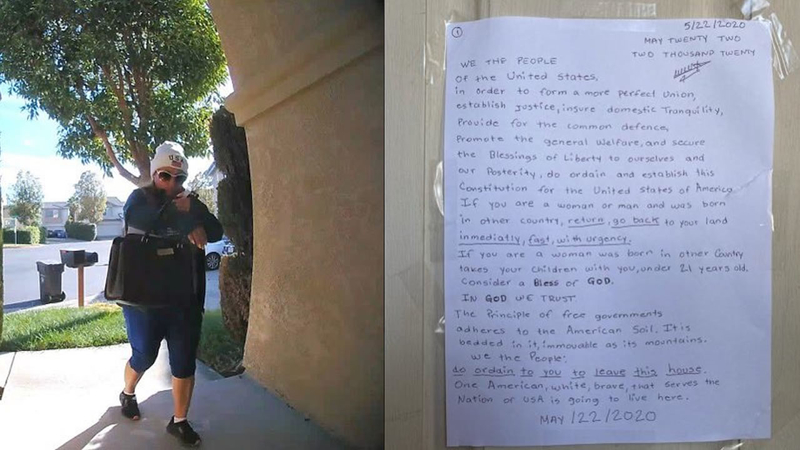 USA
①
5/22/2020
MAY TWENTY TWO
TWO THOUSAND TWENTY
WE THE PEOPLE
Of the United States,
in order to form a more perfect Union,
establish Justice, insure domestic Tranquility,
Provide for the common defence,
Promote the general Welfare, and secure
the Blessings of Liberty to ourselves and
our Posterity, do ordain and establish this
Constitution for the United States of America
If you are a woman or man and was born
in other country, return, go back to your land
inmediatly, fast, with urgency.
If you are a woman was born in other Country
takes your children with you, under 21 years old.
Consider a Bless of GOD.
IN GOD WE TRUST
The Principle of free governments
adheres to the American Soil. It is
bedded in it, immovable as its mountains.
We the People:
so ordain to you to leave this house.
One American, white, brave, that serves the
Nation or USA is going to live here.
MAY /22/2020